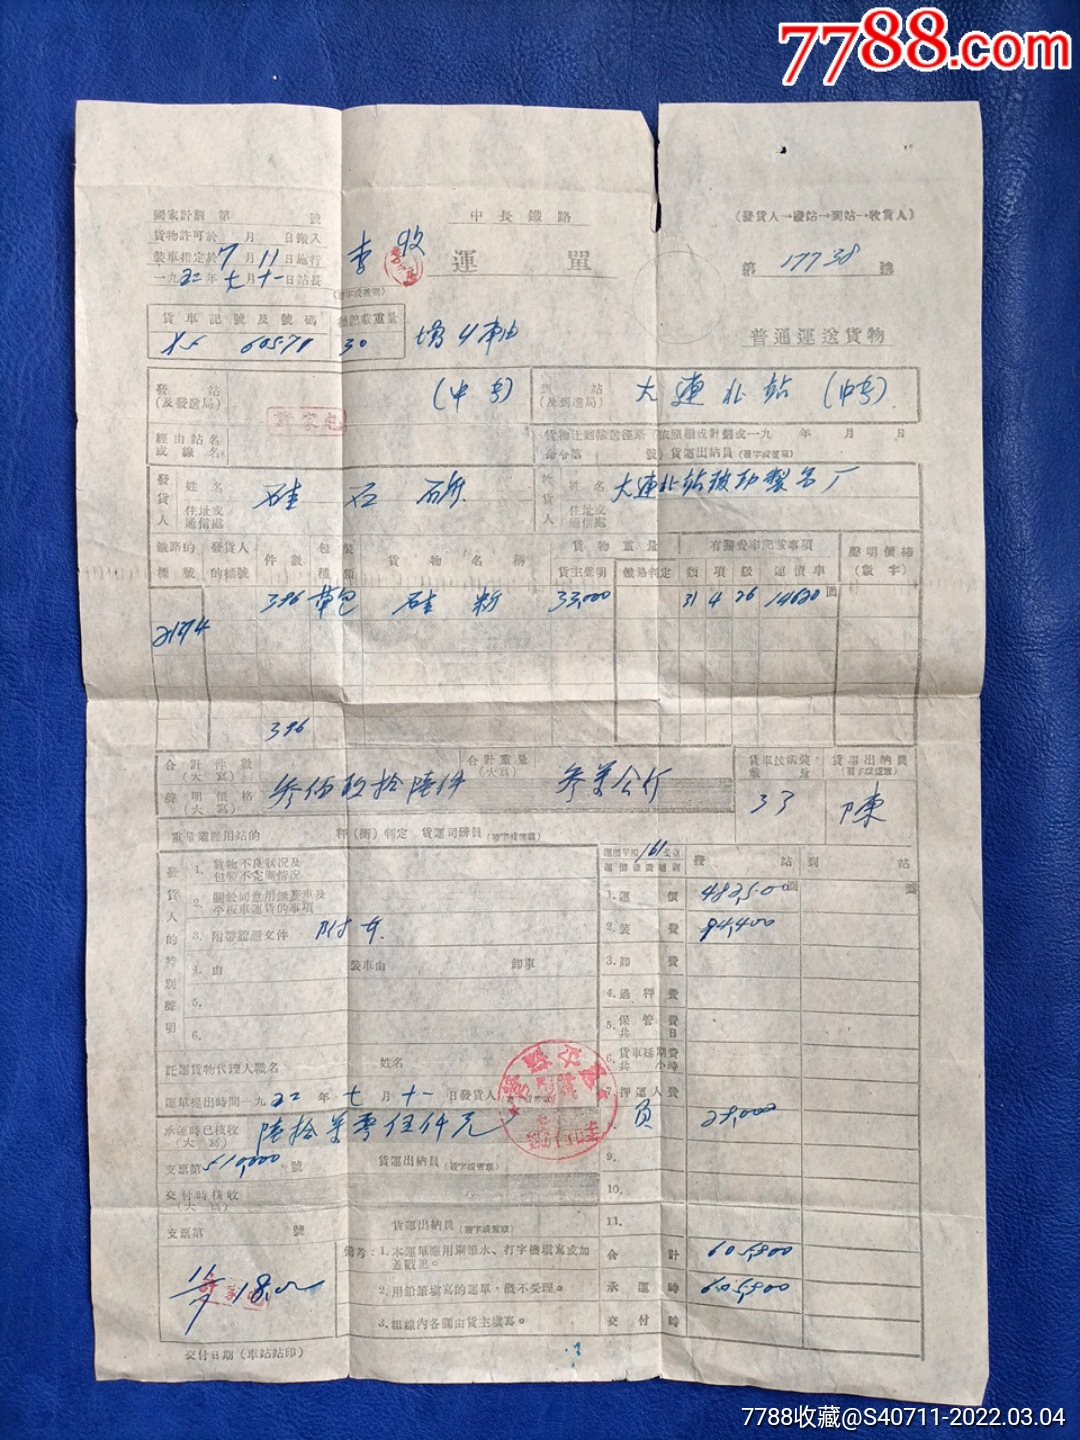 7788.com
國家計劃 第 號
貨物許可於 月 日搬入
裝車指定於 7 月 11 日施行
一九五二年 七 月 十一 日站長
李
收
(簽字或蓋章)
中長鐵路
運單
(發貨人→發站→到站→收貨人)
第 17738 號
普通運送貨物
貨車記號及號碼 標記載重量
60571 30
發站 (及發送局) (中長)
許家屯
到站 (及到達局) 大連北站 (中長)
經由站名 或線名
貨物 年 月 日
命令第 號) 貨運出納員 (簽字或蓋章)
發貨人 姓名 硅石礦
住址或通信處
收貨人 姓名 大連北站玻璃製造厂
住址或通信處
鐵路的標號 發貨人的標號 件數 包裝種類 貨物名稱 貨物重量 貨主聲明 鐵路判定 類 項 級 運價率 聲明價格(數字)
396 草包 硅粉 33,000 31 4 26 14620
2174
396
合計件數(大寫) 叁佰玖拾陸件
合計重量(大寫) 叁萬公斤
聲明價格(大寫)
貨運出納員 (簽字或蓋章)
33 陳
重量經用站的 秤(衡)判定 貨運司磅員 (簽字或蓋章)
發貨人的特別聲明
1. 貨物不良狀況及包裝不完備情況
2. 關於同意用無蓋車及平板車運貨的事項
3. 附帶證憑文件 附女
4. 由 裝車由 卸車
5.
6.
161
發站 到站
1. 運價 482,500
2. 裝費 94,400
3. 卸費
4. 過秤費
5. 保管費 共 日
6. 貨車延期費 共 小時
7. 押運人費
28,000
9.
10.
11.
合計 605,800
承運時 605,800
交付時
託運貨物代理人職名 姓名
運單提出時間一九五二年 七 月 十一 日發貨人
承運時已核收(大寫) 陸拾萬零伍仟元
支票第 510,000 號 貨運出納員 (簽字或蓋章)
交付時核收(大寫)
支票第 號 貨運出納員 (簽字或蓋章)
備考:1. 本運單應用鋼筆水、打字機填寫或加蓋戳記。
2. 用鉛筆填寫的運單,概不受理。
3. 粗線內各欄由貨主填寫。
交付日期(車站站印)
7788收藏@S40711-2022.03.04